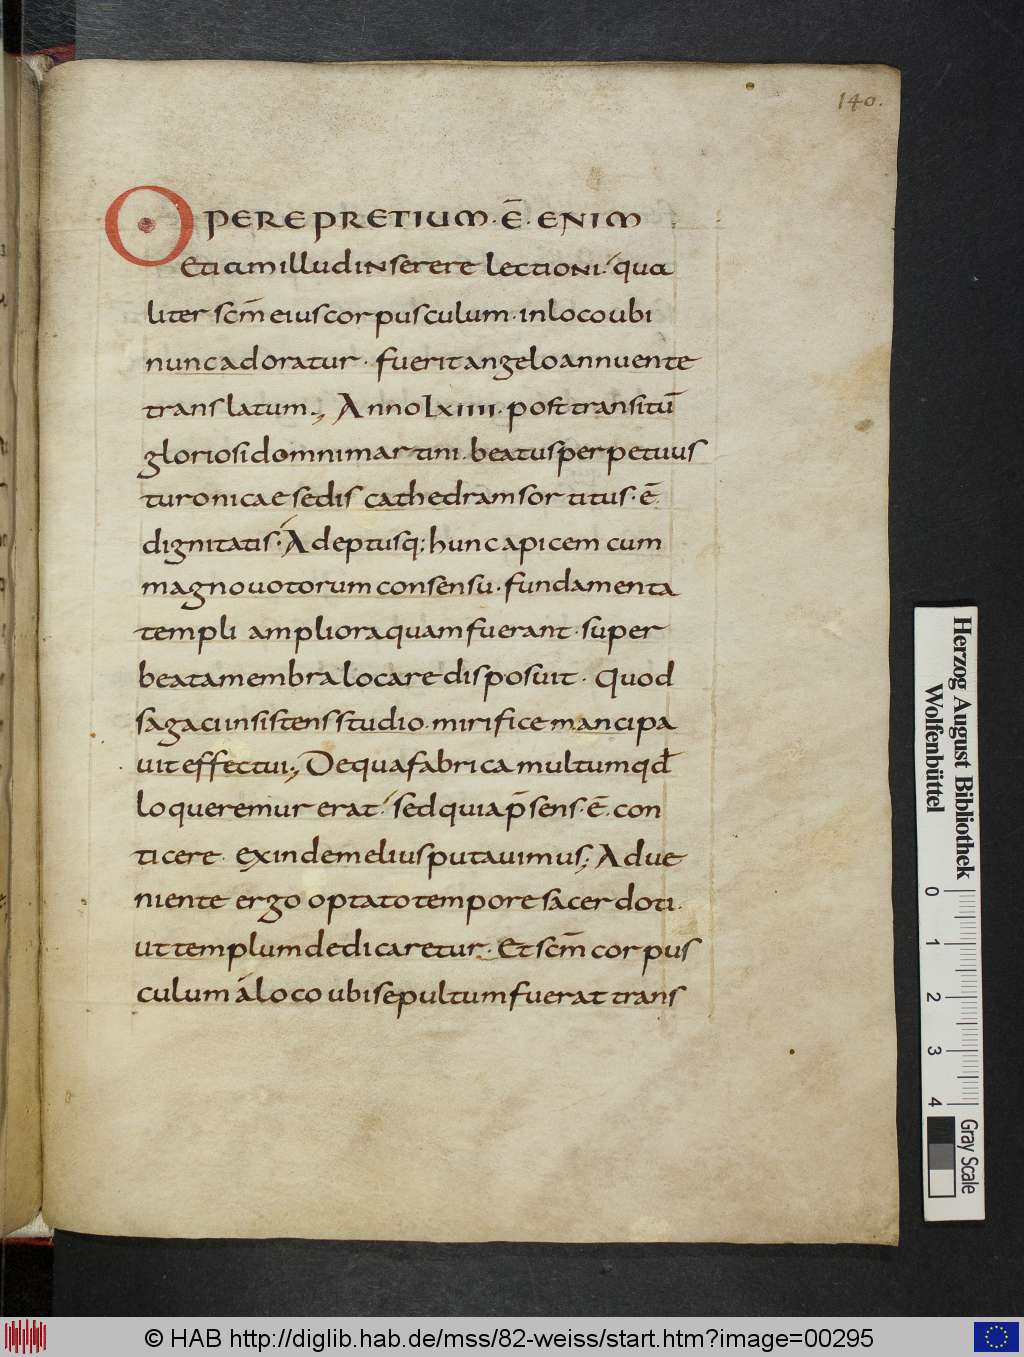 140.
OPERE PRETIUM · Ē · ENIM
Etiam illud inserere lectioni · qua
liter scm̄ eius corpusculum · in loco ubi
nunc adoratur · fuerit angelo annuente
translatum ., Anno lxiiii · post transitū
gloriosi domni martini · beatus perpetuus
turonicae sedis cathedram sortitus · ē
dignitatis · Adeptusq; hunc apicem cum
magno uotorum consensu · fundamenta
templi ampliora quam fuerant · super
beata membra locare disposuit · Quod
sagaci insistens studio · mirifice mancipa
uit effectui ., De qua fabrica multum qđ
loqueremur erat · sed quia p̄sens · ē · con
ticere · exinde melius putauimus ; Adue
niente ergo optato tempore sacerdoti ·
ut templum dedicaretur · Et scm̄ corpus
culum á loco ubi sepultum fuerat trans
Herzog August Bibliothek
Wolfenbüttel
0 1 2 3 4
Gray Scale
© HAB http://diglib.hab.de/mss/82-weiss/start.htm?image=00295